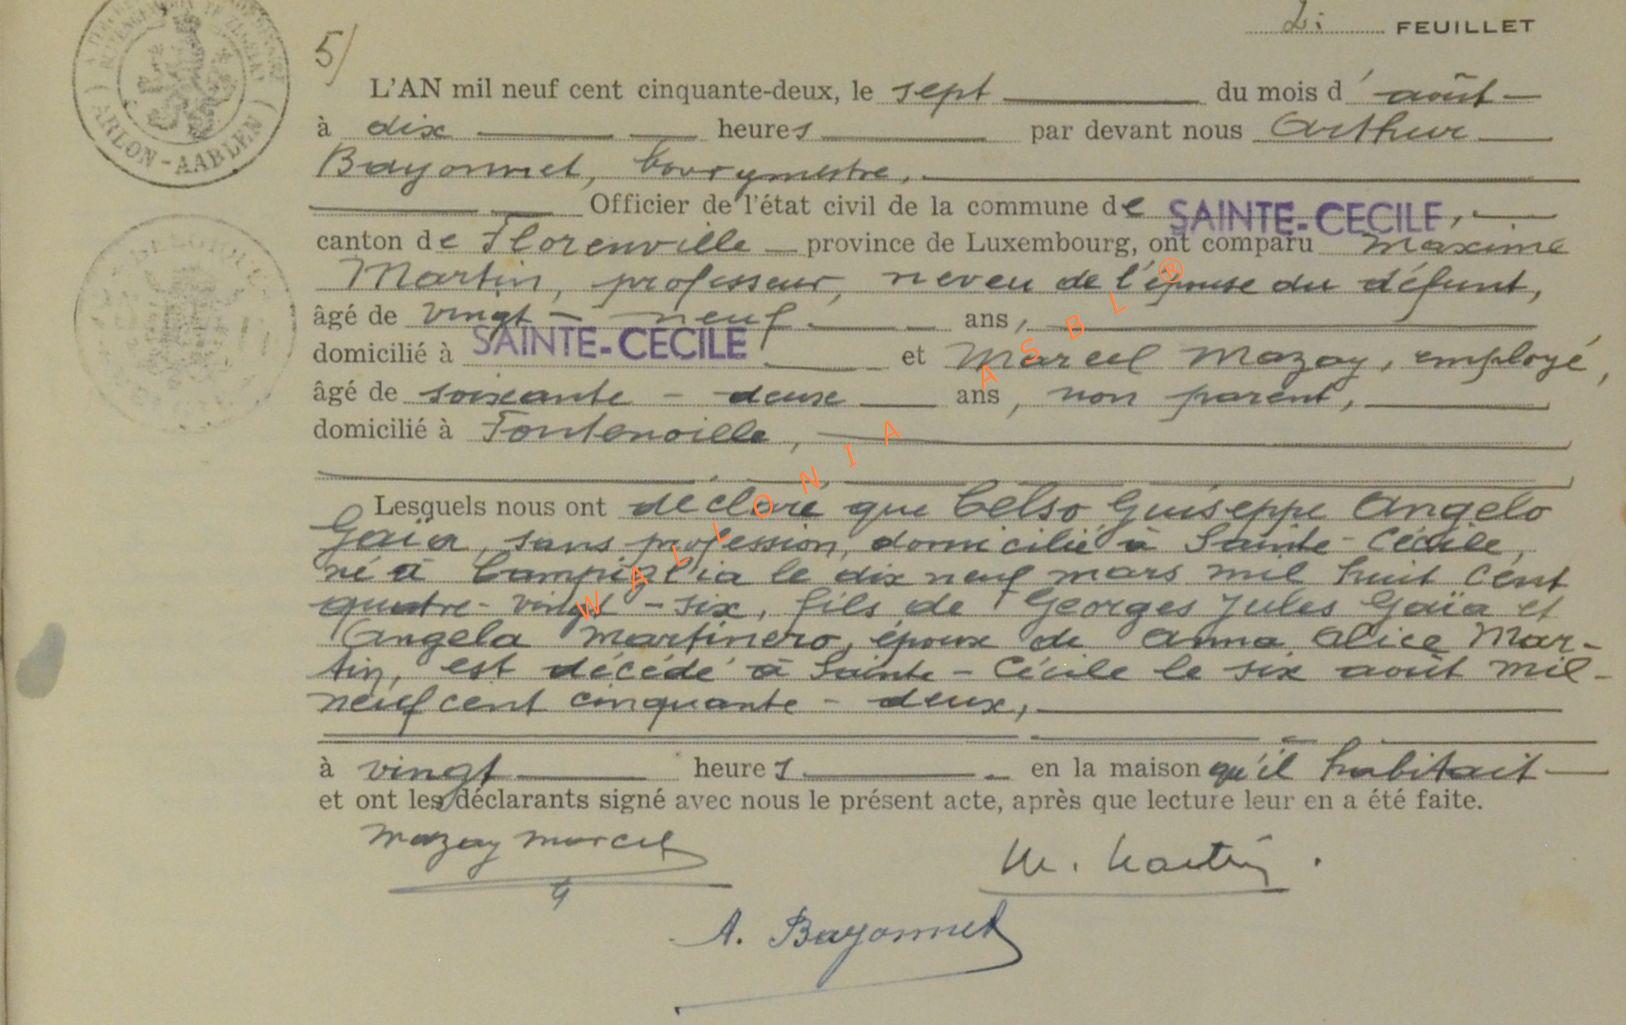 2i FEUILLET
5/
L'AN mil neuf cent cinquante-deux, le sept du mois d' août
à dix heures par devant nous Arthur
Bayonnet, bourgmestre,
Officier de l'état civil de la commune de SAINTE-CECILE,
canton de Florenville province de Luxembourg, ont comparu Maxime
Martin, professeur, neveu de l'épouse du défunt,
âgé de vingt-neuf ans,
domicilié à SAINTE-CECILE et Marcel Mazay, employé,
âgé de soixante-deux ans, non parent,
domicilié à Fontenoille,
Lesquels nous ont déclaré que Celso Guiseppe Angelo
Gaïa, sans profession, domicilié à Sainte-Cécile,
né à Campiglia le dix neuf mars mil huit cent
quatre-vingt-six, fils de Georges Jules Gaïa et
Angela Martinero, époux de Anna Alice Mar-
tin, est décédé à Sainte-Cécile le six août mil-
neuf cent cinquante-deux,
à vingt heures en la maison qu'il habitait
et ont les déclarants signé avec nous le présent acte, après que lecture leur en a été faite.
Mazay Marcel
M. Martin.
A. Bayonnet
ARLON-AARLEN
BELGIQUE
WALLONIA ASBL ®